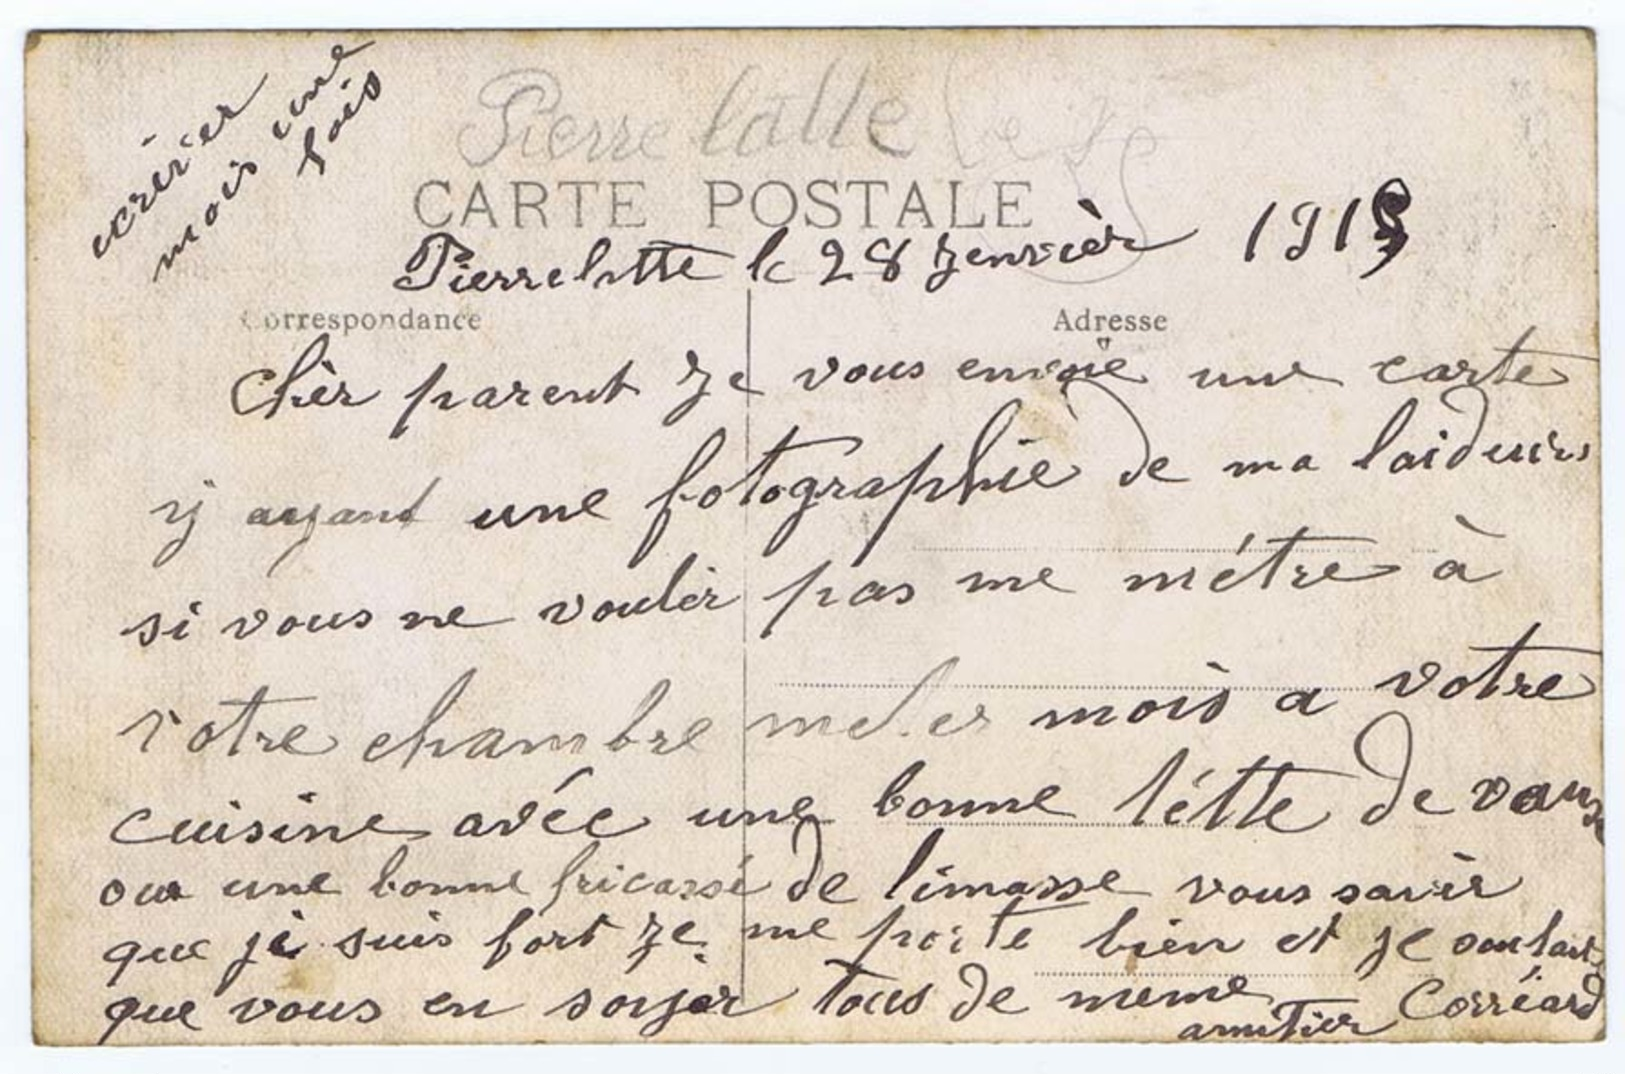 ecrivér
mois une
fois
Pierrelatte le
CARTE POSTALE
Pierrelatte le 28 jenvièr 1915
Correspondance
Adresse
Chèr parent je vous envoie une carte
ij ayant une fotographie de ma laideur
si vous ne voulèr pas me métre à
votre chambre meter mois a votre
cuisine avéc une bonne tétte de
ou une bonne fricassé de limasse vous savèr
que je suis fort je me porte bien et je
que vous en soyèr tous de meme
amitier Corréard